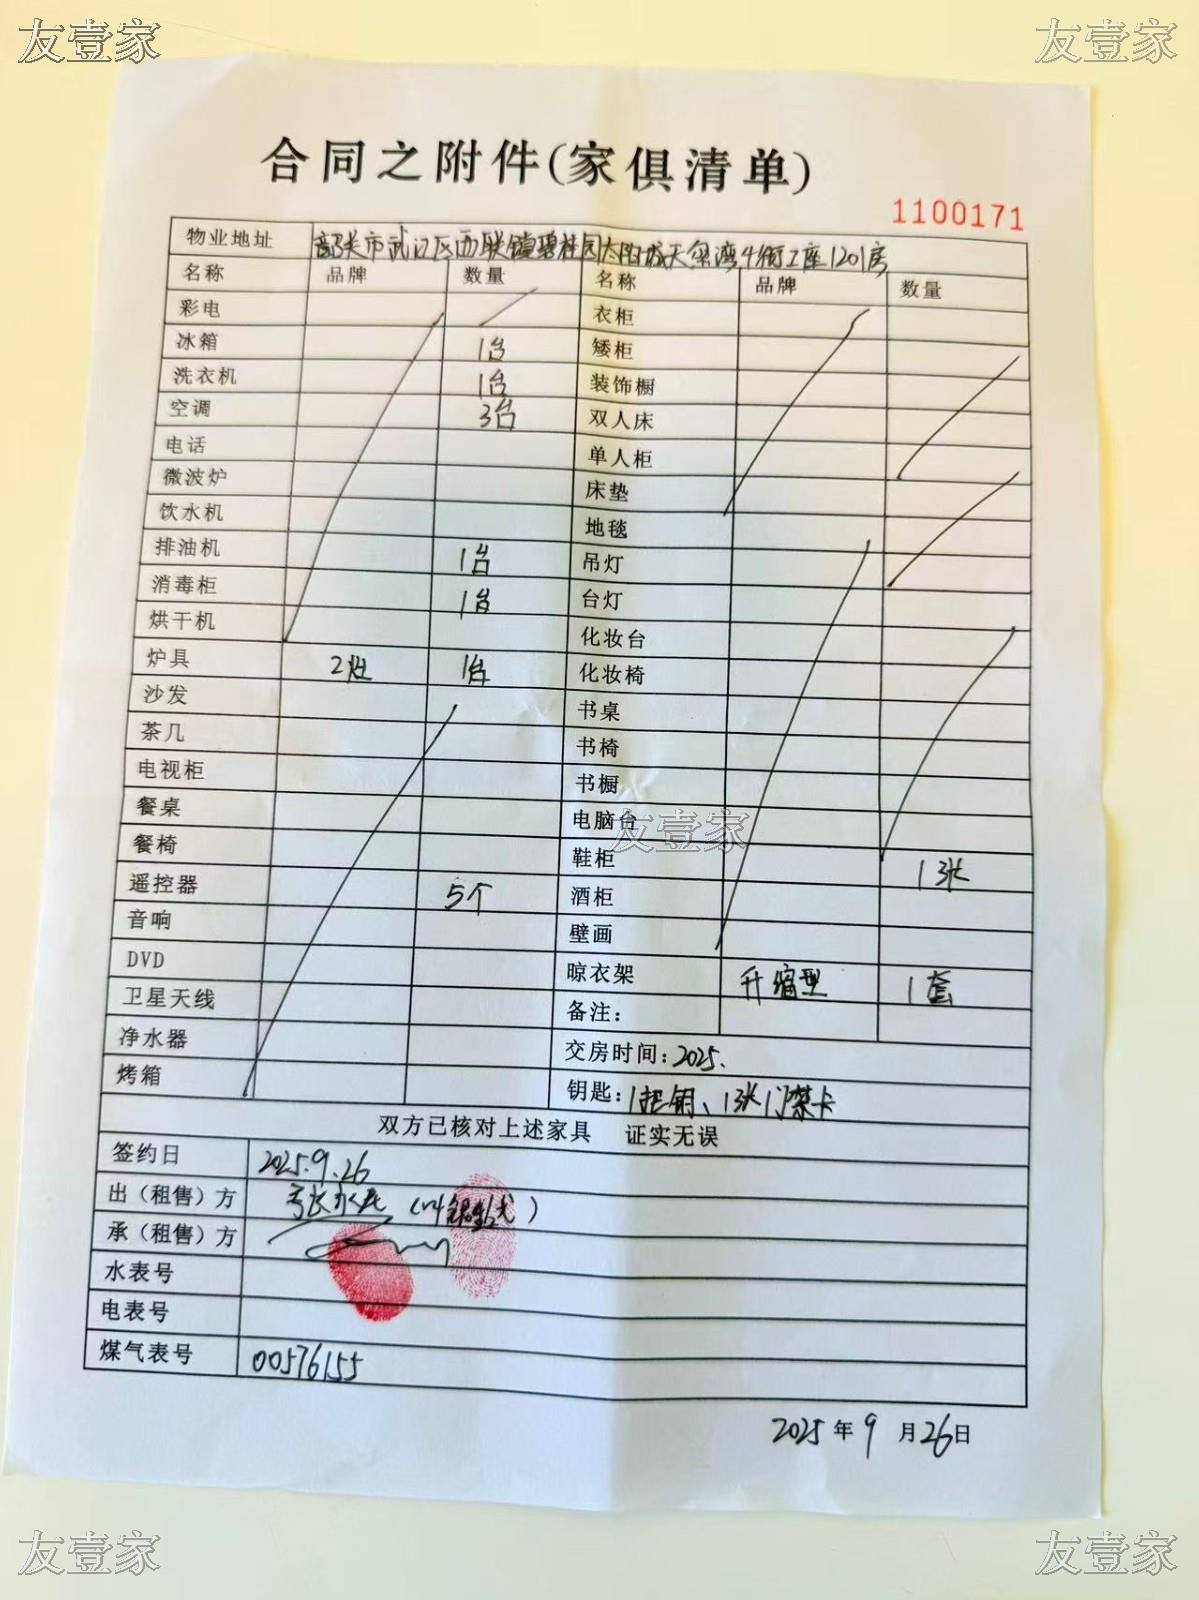 友壹家 友壹家
合同之附件(家俱清单)
1100171
物业地址 韶关市武江区西联镇碧桂园太阳城天玺湾4街2座1201房
名称 品牌 数量 名称 品牌 数量
彩电 衣柜
冰箱 1台 矮柜
洗衣机 1台 装饰橱
空调 3台 双人床
电话 单人柜
微波炉 床垫
饮水机 地毯
排油机 1台 吊灯
消毒柜 1台 台灯
烘干机 化妆台
炉具 2灶 1台 化妆椅
沙发 书桌
茶几 书椅
电视柜 书橱
餐桌 电脑台
友壹家
餐椅 鞋柜 1张
遥控器 5个 酒柜
音响 壁画
DVD 晾衣架 升缩型 1套
卫星天线 备注：
净水器 交房时间：2025.
烤箱 钥匙：1把钥、1张门禁卡
双方已核对上述家具 证实无误
签约日 2025.9.26
出（租售）方
承（租售）方
水表号
电表号
煤气表号 00576155
2025年9月26日
友壹家 友壹家